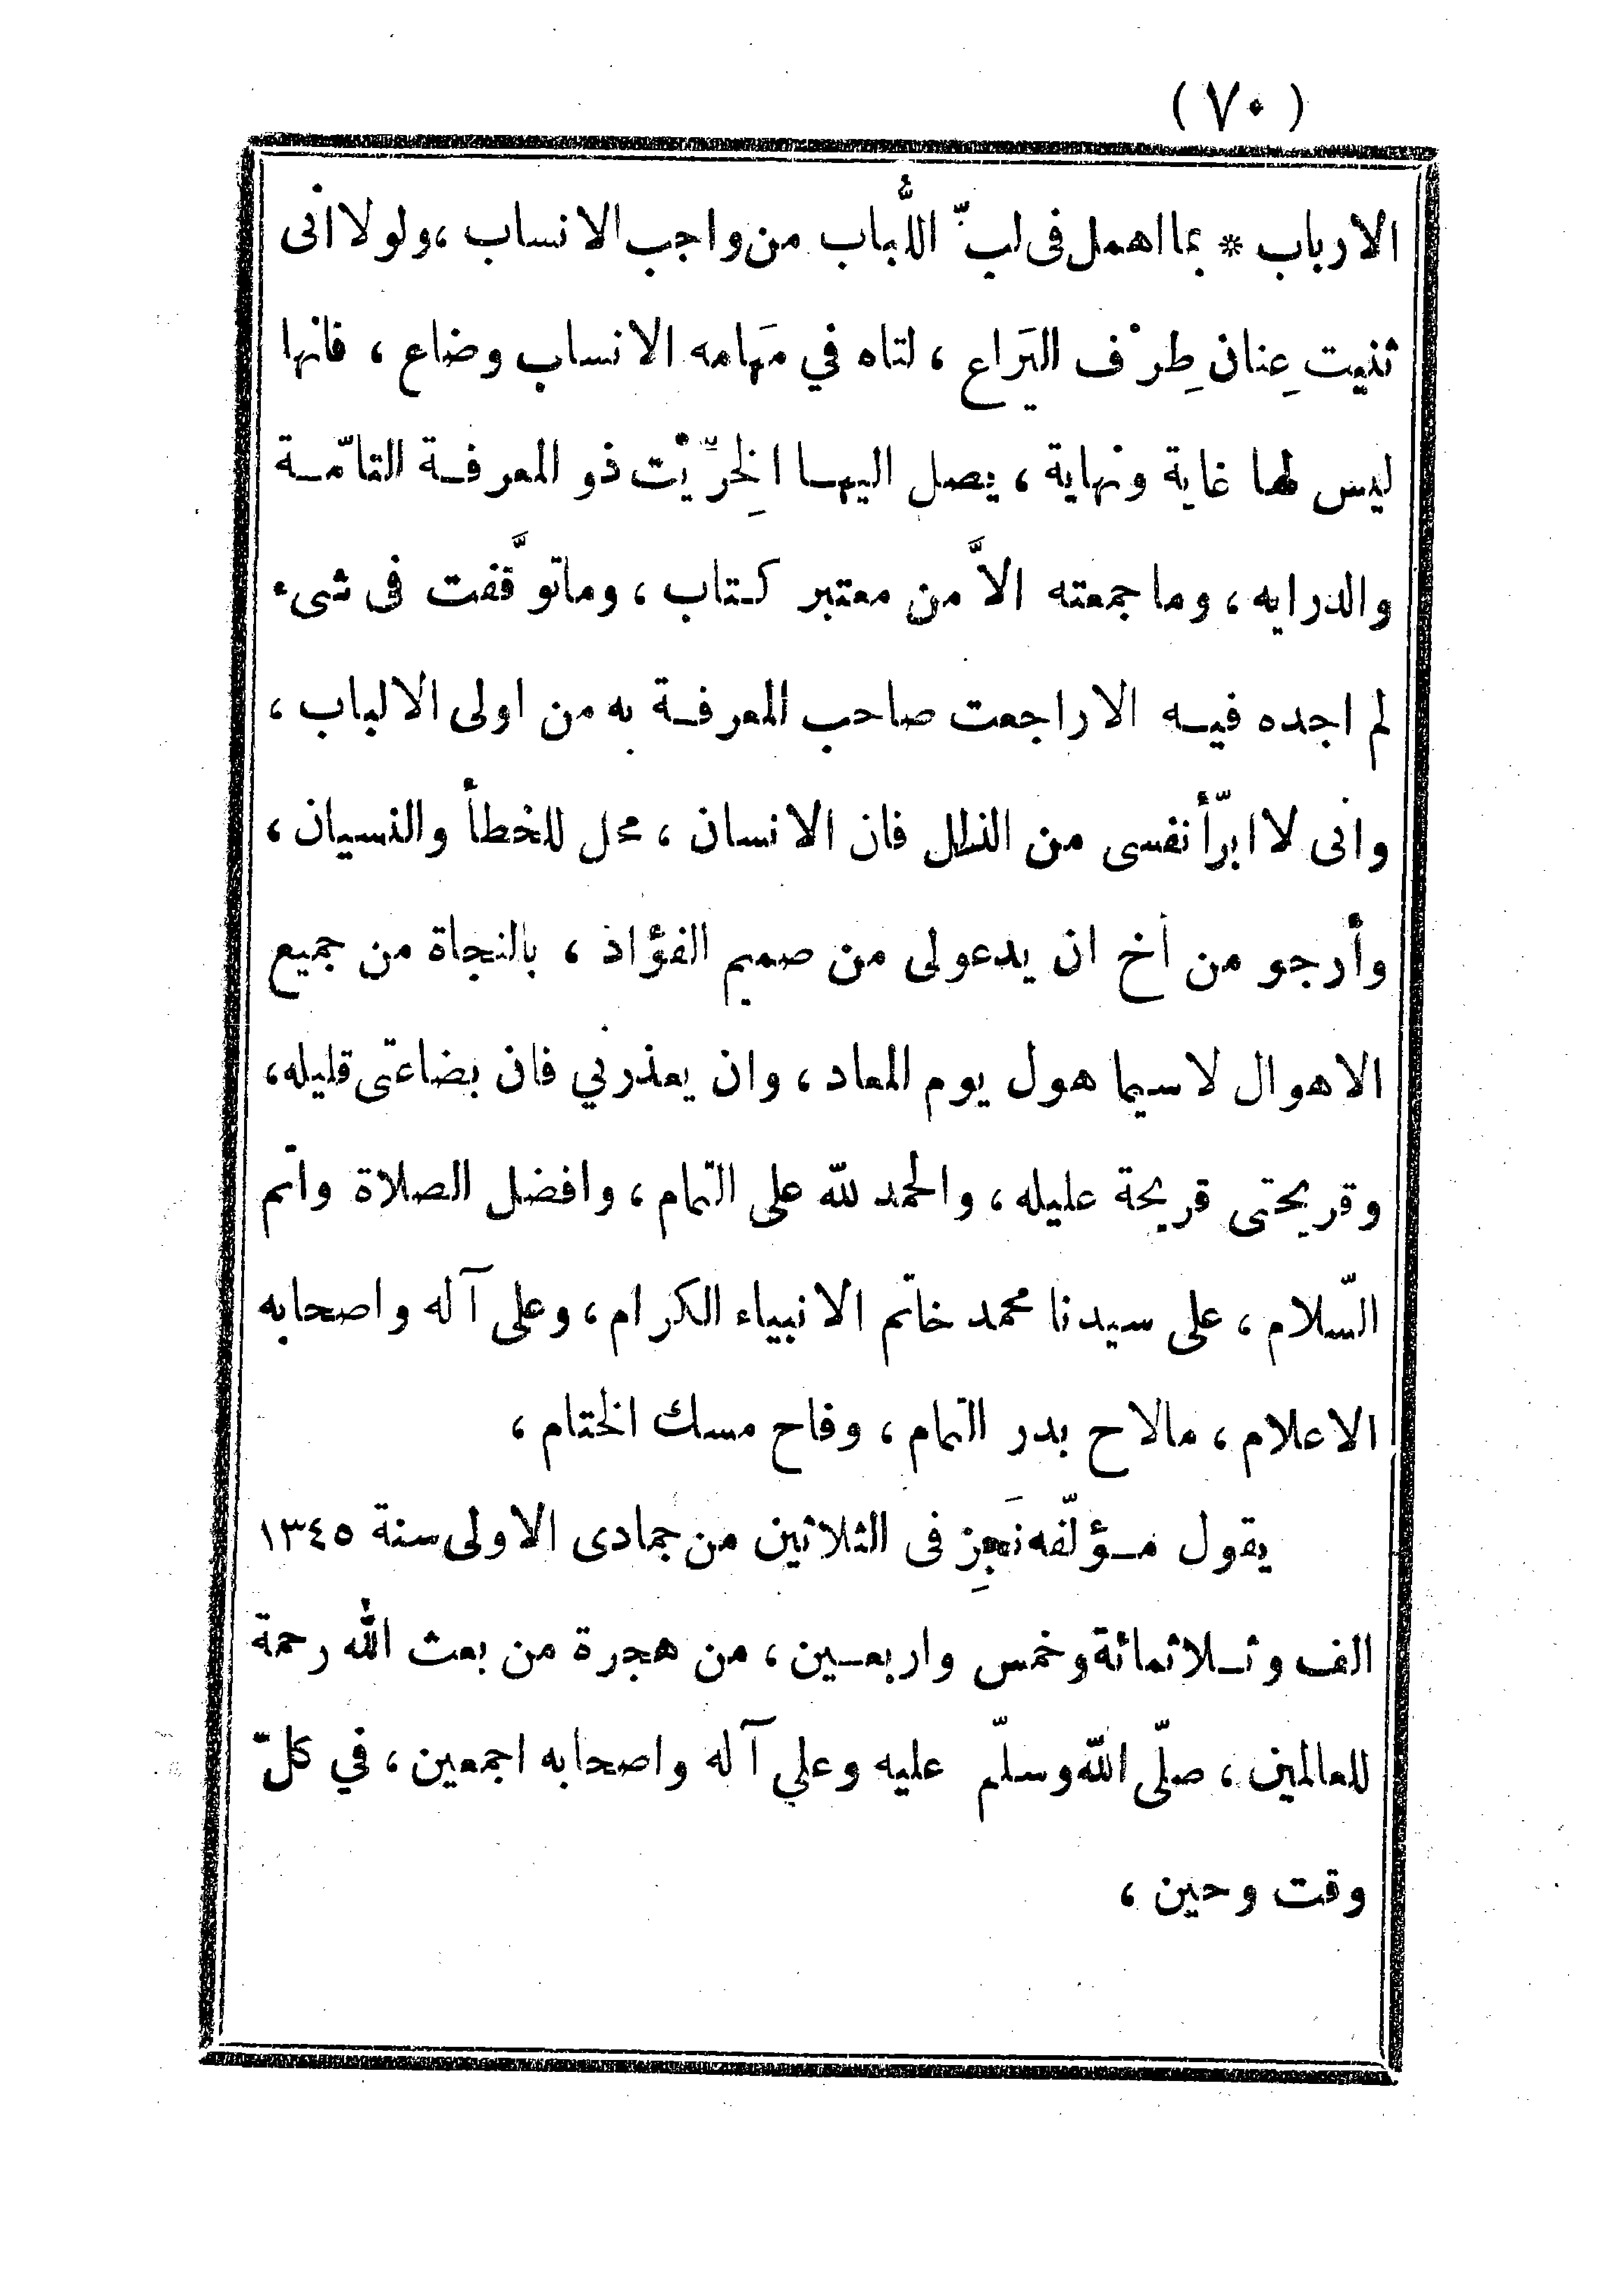 (٧٠)
الارباب * بما اهمل فى لبّ اللُّباب من واجب الانساب ، ولولا انى
ثنيت عِنان طِرْف اليَراع ، لتاه في مَهامه الانساب وضاع ، فانها
ليس لها غاية ونهاية ، يصل اليها الخِرِّيْت ذو المعرفة التامّة
والدرايه ، وما جمعته الاَّ من معتبر كتاب ، وماتوَّقفت فى شىء
لم اجده فيه الا راجعت صاحب المعرفة به من اولى الالباب ،
وانى لا ابرّأ نفسى من الذلل فان الانسان ، محل للخطأ والنسيان ،
وأرجو من أخ ان يدعولى من صميم الفؤاد ، بالنجاة من جميع
الاهوال لاسيما هول يوم المعاد ، وان يعذرني فان بضاعتى قليله ،
وقريحتى قريحة عليله ، والحمد لله على التمام ، وافضل الصلاة واتم
السّلام ، على سيدنا محمد خاتم الانبياء الكرام ، وعلى آله واصحابه
الاعلام ، مالاح بدر التمام ، وفاح مسك الختام ،
يقول مؤلّفه نَجِز فى الثلاثين من جمادى الاولى سنة ١٣٤٥
الف وثلاثمائة وخمس واربعين ، من هجرة من بعث الله رحمة
للعالمين ، صلّى الله وسلّم عليه وعلي آله واصحابه اجمعين ، في كلّ
وقت وحين ،